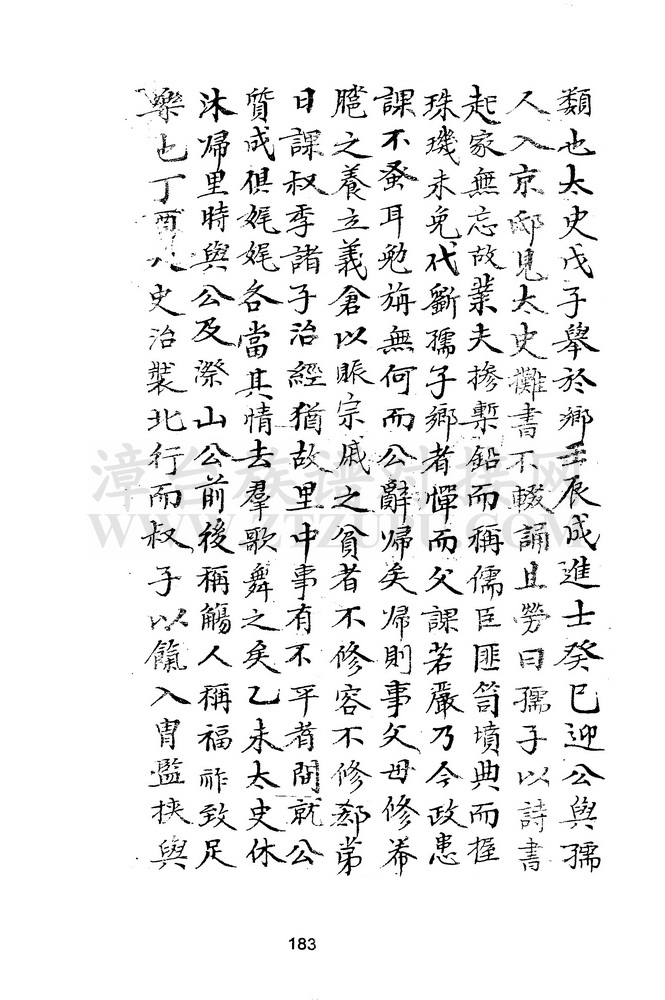 類也太史戊子舉於鄉壬辰成進士癸巳迎公與孺
人入京邸見太史攤書不輟誦且勞曰孺子以詩書
起家無忘故業夫摻槧鉛而稱儒臣匪笥墳典而握
珠璣未免代斲孺子鄉者憚而父課若嚴乃今政患
課不蚤耳勉旃無何而公辭歸矣歸則事父母修希
膯之養立義倉以賑宗戚之貧者不修容不修郄第
日課叔季諸子治經猶故里中事有不平者間就公
質成俱娓娓各當其情去羣歌舞之矣乙未太史休
沐歸里時與公及漈山公前後稱觴人稱福祚致足
樂也丁酉史治裝北行而叔子以餼入胄監挾與
漳台族谱对接网
WWW.ZTZUPU.COM
183